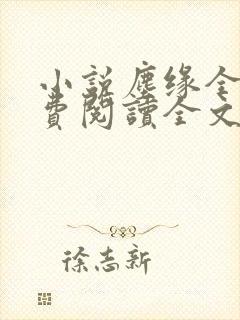 小说塵缘全
费閱讀全文
徐志新